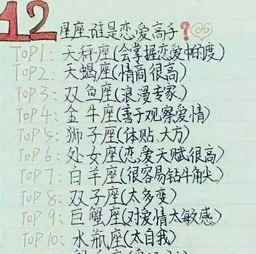 12星座谁是恋爱高手?
TOP1:天秤座(会掌握恋爱尺度)
TOP2:天蝎座(情商很高)
TOP3:双鱼座(浪漫专家)
TOP4:金牛座(善于观察爱情)
TOP5:狮子座(体贴,大方)
TOP6:处女座(恋爱天赋很高)
TOP7:白羊座(很容易钻牛角尖)
TOP8:双子座(太多变)
TOP9:巨蟹座(对爱情太敏感)
TOP10:水瓶座(太自我)